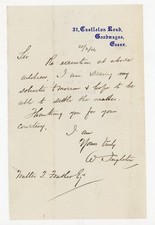 31, Castleton Road,
Goodmayes,
Essex.
Sir
The execution at above
address. I am seeing my
solicitor tomorrow & hope to be
able to settle the matter.
Thanking you for your
courtesy.
I am
Yours truly
W Singleton
Walter